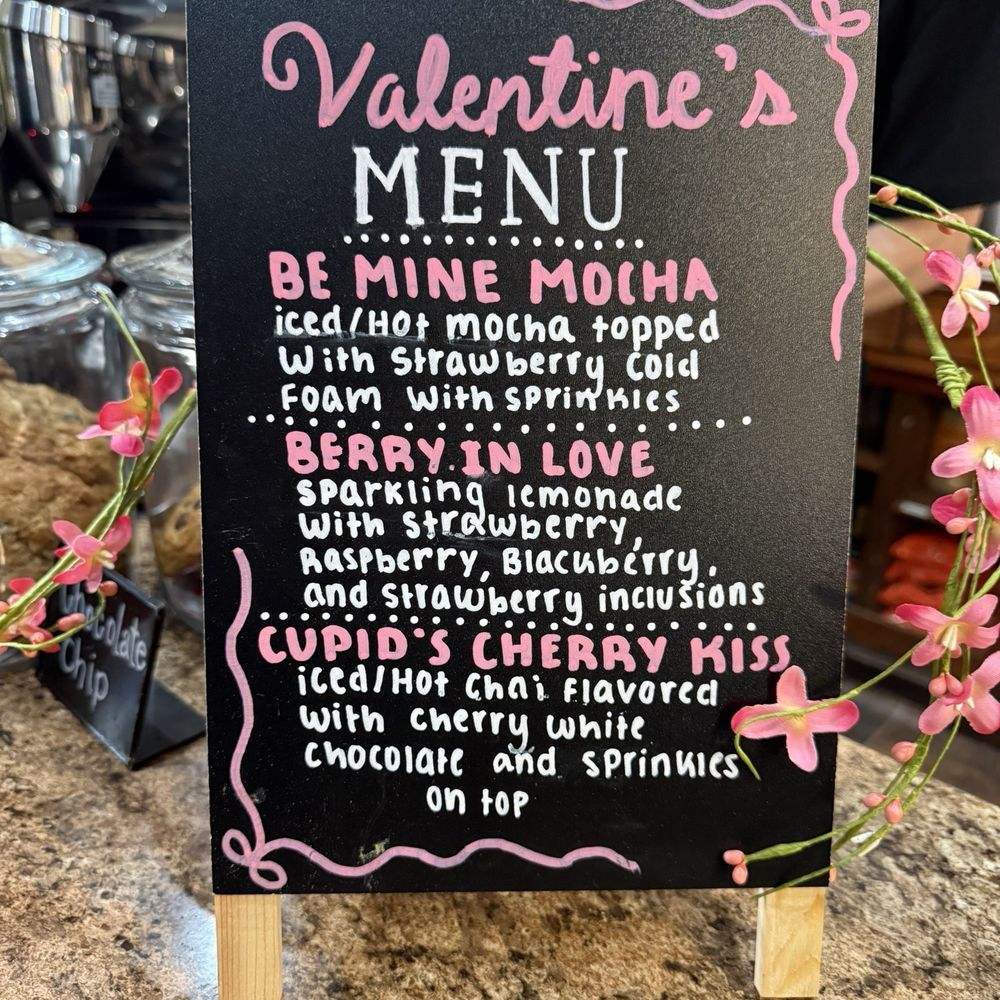 Valentine's
MENU
BE MINE MOCHA
iced/Hot mocha topped
With Strawberry Cold
Foam With Sprinkles
BERRY IN LOVE
Sparkling lemonade
With Strawberry,
Raspberry, Blackberry,
and Strawberry inclusions
CUPID'S CHERRY KISS
iced/Hot Chai Flavored
With Cherry White
Chocolate and Sprinkles
on top
Chocolate
Chip